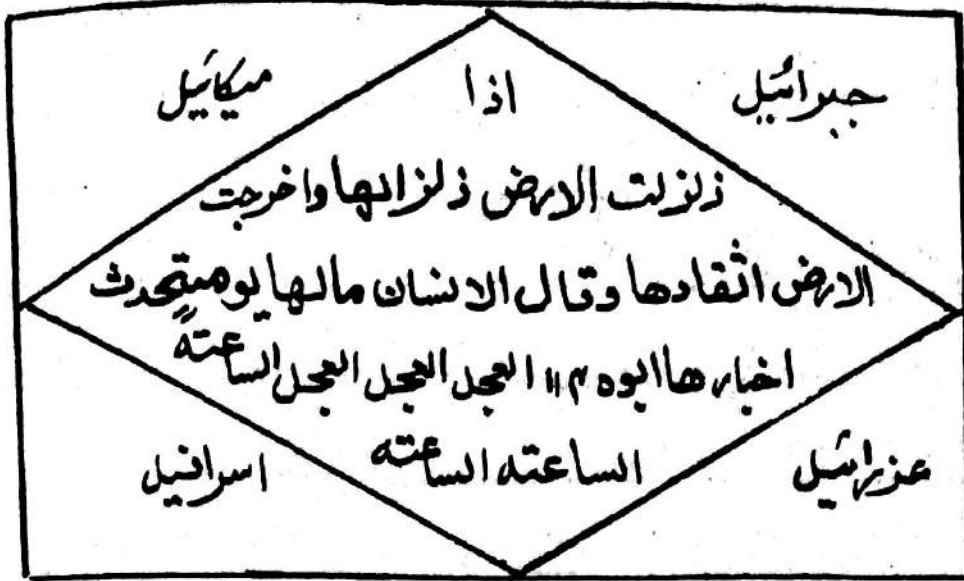 جبرائيل
ميكائيل
اذا
زلزلت الارض زلزالها واخرجت
الارض اثقالها وقال الانسان مالها يومئذ تحدث
اخبارها العجل العجل العجل الساعته
الساعته الساعته
عزرائيل
اسرافيل